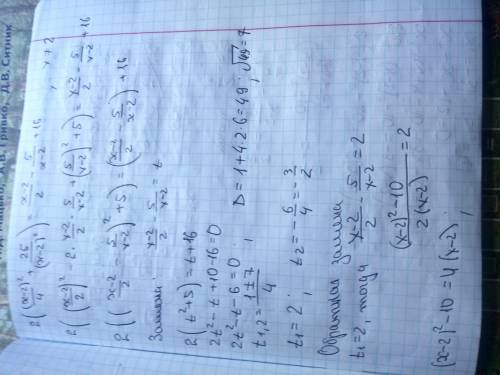 Мацько, Д.В. Ситник
2((x-2)²/4 + 25/(x-2)²) = (x-2)/2 - 5/(x-2) + 16, x≠2
2(((x-2)/2)² - 2·(x-2)/2·5/(x-2) + (5/(x-2))² + 5) = (x-2)/2 - 5/(x-2) + 16
2(((x-2)/2 - 5/(x-2))² + 5) = ((x-2)/2 - 5/(x-2)) + 16
Замена: (x-2)/2 - 5/(x-2) = t
2(t²+5) = t+16
2t² - t + 10 - 16 = 0
2t² - t - 6 = 0; D = 1+4·2·6 = 49; √49 = 7
t₁,₂ = (1±7)/4;
t₁ = 2; t₂ = -6/4 = -3/2
Обратная замена
t₁=2, тогда (x-2)/2 - 5/(x-2) = 2
((x-2)² - 10)/(2(x-2)) = 2
(x-2)² - 10 = 4(x-2);